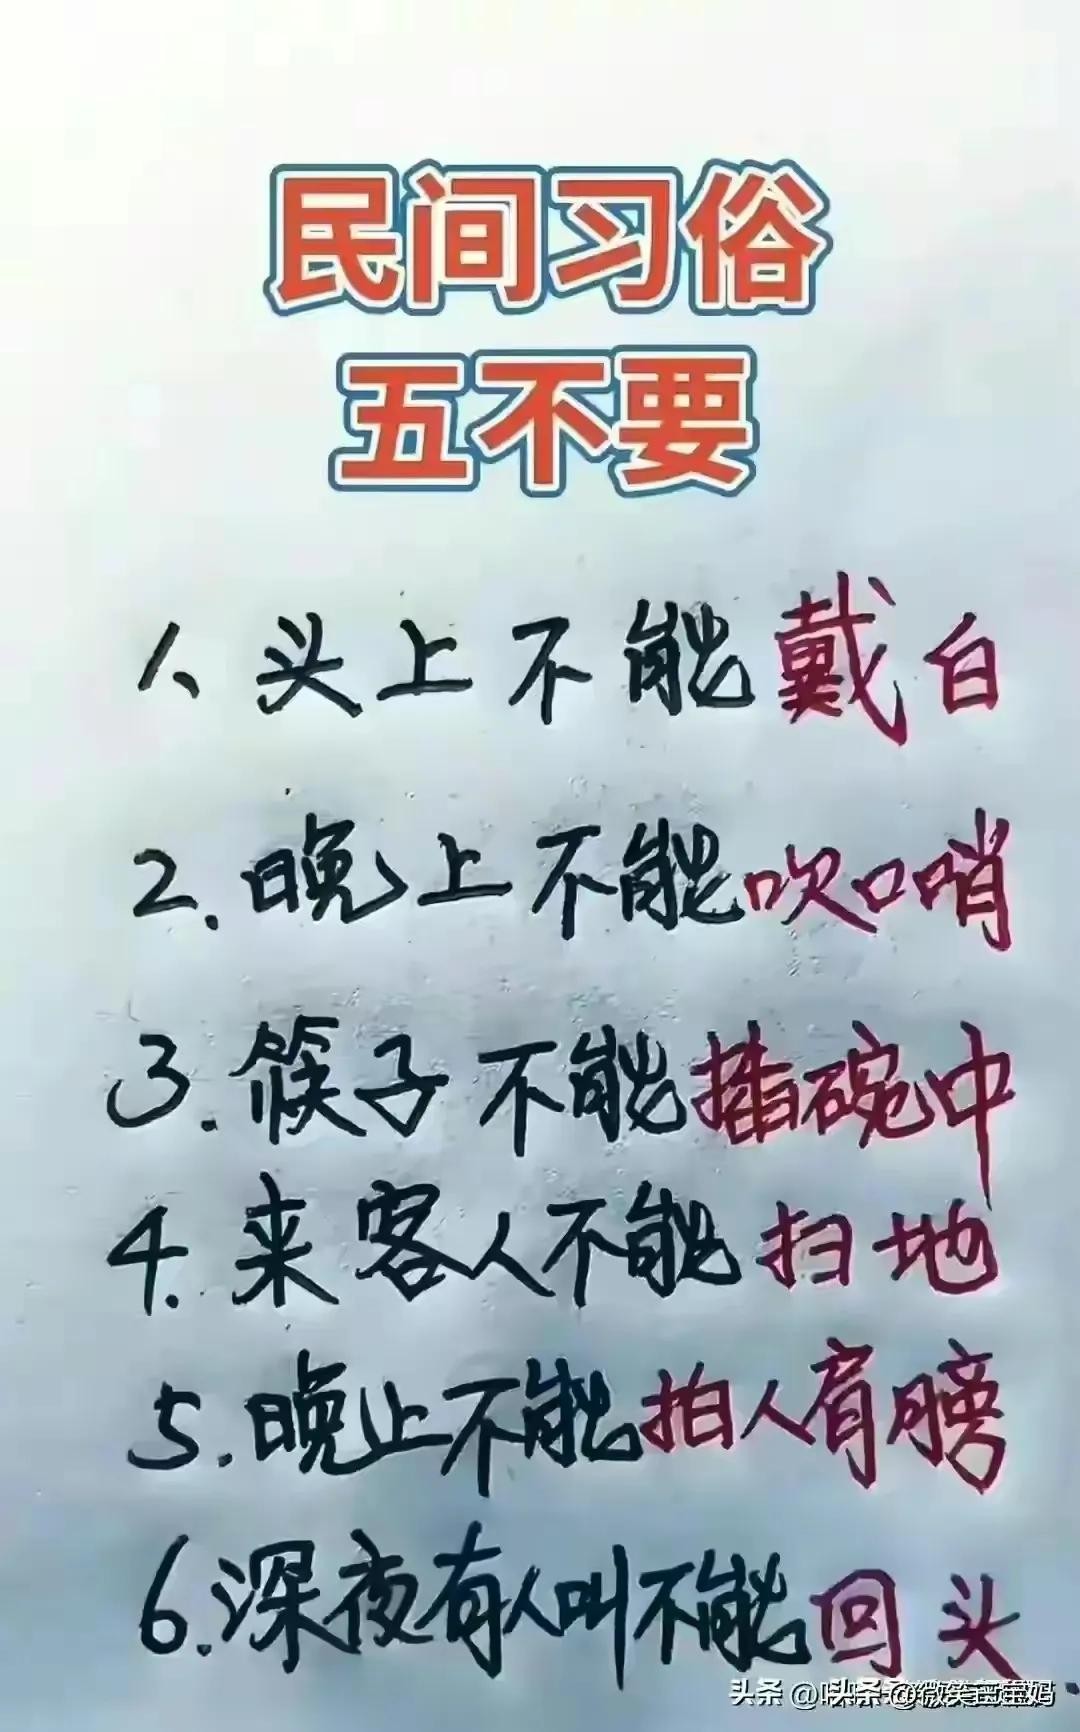 民间习俗
五不要
1、头上不能戴白
2.晚上不能吹口哨
3.筷子不能插碗中
4.来客人不能扫地
5.晚上不能拍人肩膀
6.深夜有人叫不能回头
头条 @微笑宝宝妈